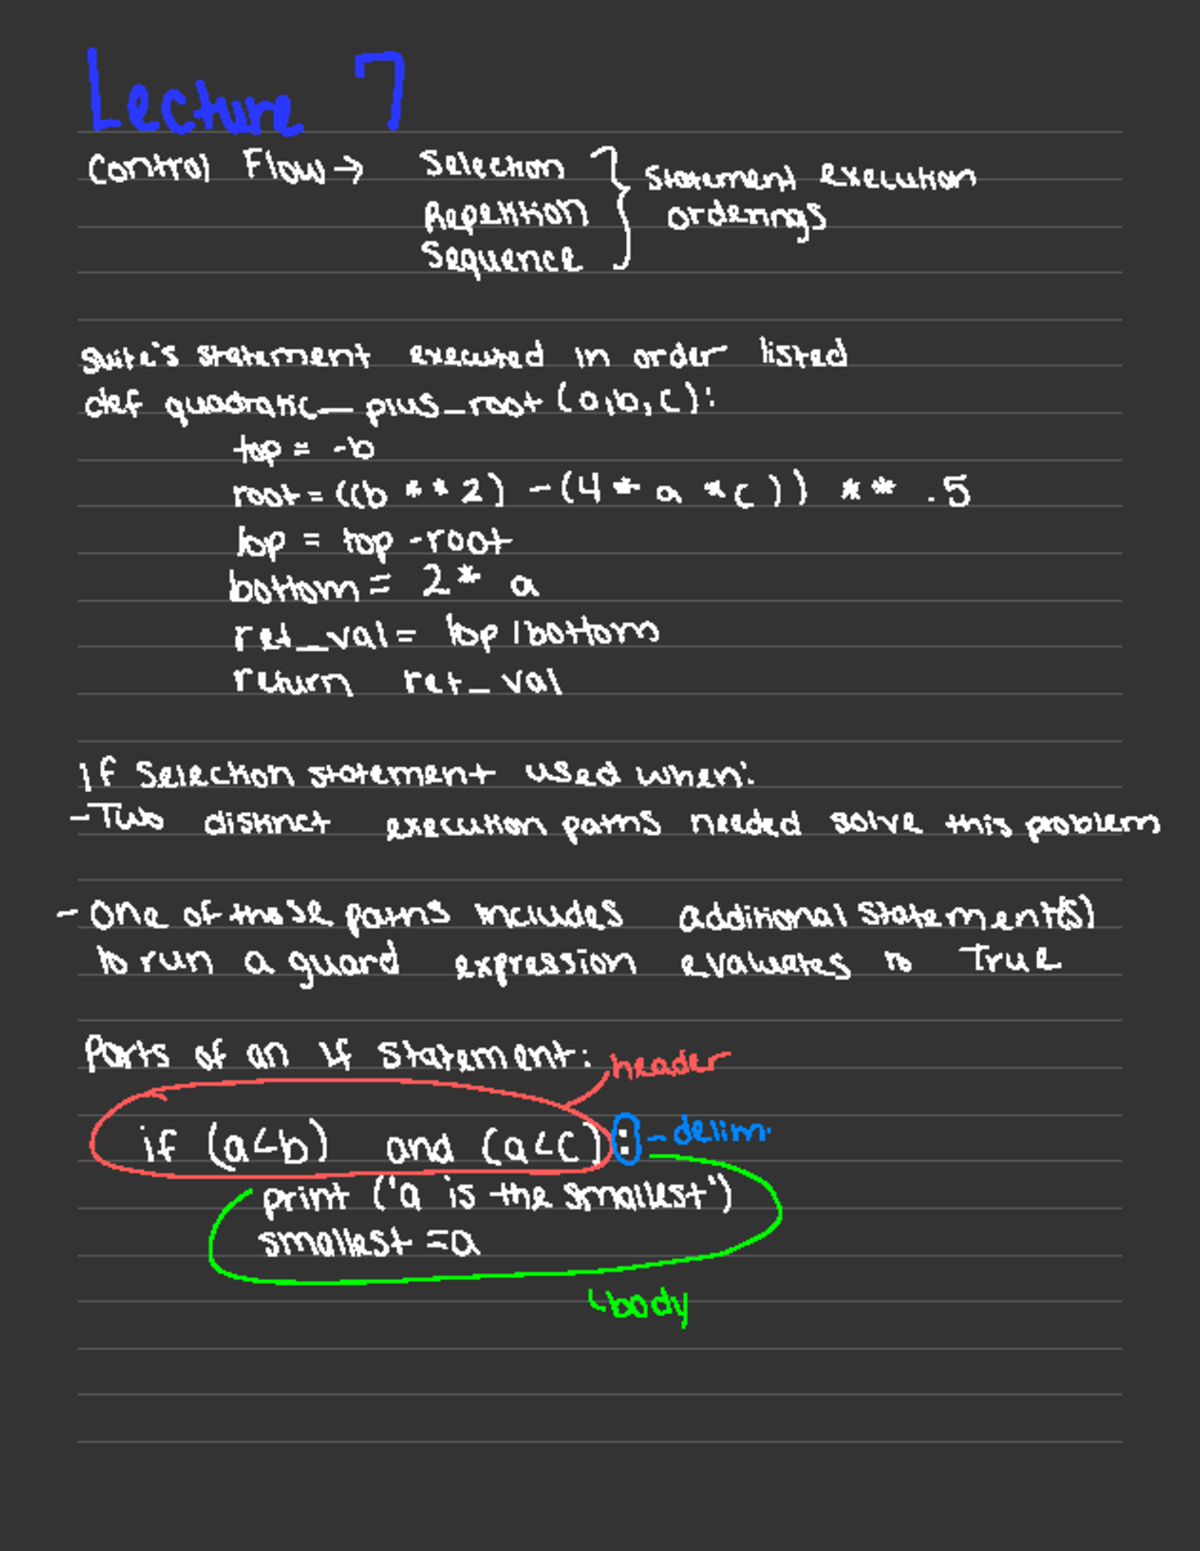 Lecture 7
Control Flow → Selection
Repetition
Sequence
Statement execution
orderings
Suite's statement executed in order listed
def quadratic_plus_root (a,b,c):
top = -b
root = ((b ** 2) - (4 * a * c)) ** .5
top = top - root
bottom = 2 * a
ret_val = top / bottom
return ret_val
if Selection statement used when:
- Two distinct execution paths needed solve this problem
- One of these paths includes additional statement(s)
to run a guard expression evaluates to True
Parts of an if statement:
header
if (a<b) and (a<c) :
- delim.
print ('a is the smallest')
smallest = a
body